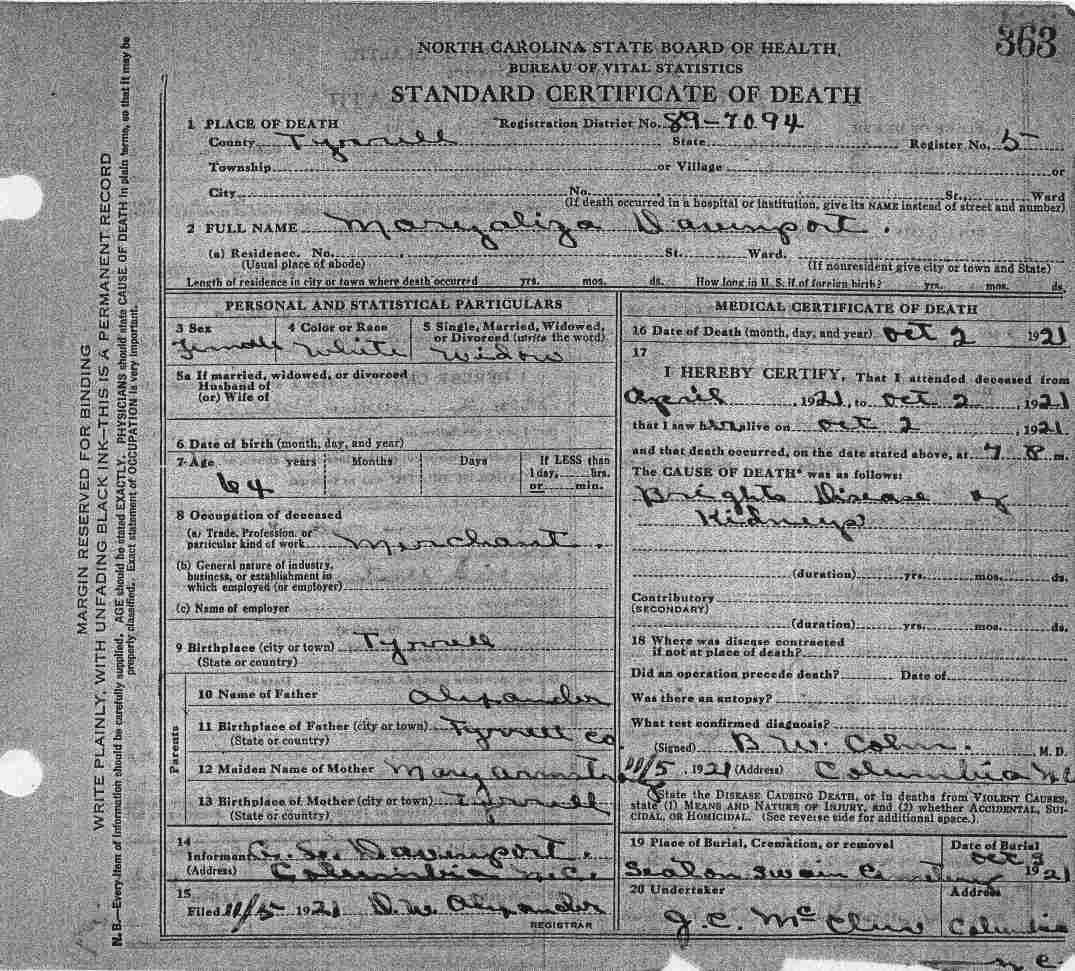 363
NORTH CAROLINA STATE BOARD OF HEALTH
BUREAU OF VITAL STATISTICS
STANDARD CERTIFICATE OF DEATH
1 PLACE OF DEATH Registration District No. 89-7094
County Tyrrell State Register No. 5
Township or Village or
City No. St., Ward
(If death occurred in a hospital or institution, give its NAME instead of street and number)
2 FULL NAME Maryaliza Davenport.
(a) Residence. No. St. Ward.
(Usual place of abode) (If nonresident give city or town and State)
Length of residence in city or town where death occurred yrs. mos. ds. How long in U. S. if of foreign birth? yrs. mos. ds.
PERSONAL AND STATISTICAL PARTICULARS
3 Sex 4 Color or Race 5 Single, Married, Widowed,
or Divorced (write the word)
Female White Widow
5a If married, widowed, or divorced
Husband of
(or) Wife of
6 Date of birth (month, day, and year)
7 Age years Months Days If LESS than
1 day, hrs.
64 or min.
8 Occupation of deceased
(a) Trade, Profession, or
particular kind of work Merchant.
(b) General nature of industry,
business, or establishment in
which employed (or employer)
(c) Name of employer
9 Birthplace (city or town) Tyrrell
(State or country)
Parents
10 Name of Father Alexander
11 Birthplace of Father (city or town) Tyrrell Co.
(State or country)
12 Maiden Name of Mother
13 Birthplace of Mother (city or town) Tyrrell
(State or country)
14
Informant Davenport.
(Address) Columbia N.C.
15
Filed 11/5 1921 D. W. Alexander
REGISTRAR
MEDICAL CERTIFICATE OF DEATH
16 Date of Death (month, day, and year) Oct 2 1921
17
I HEREBY CERTIFY, That I attended deceased from
April , 1921, to Oct 2 , 1921
that I saw her alive on Oct 2 , 1921
and that death occurred, on the date stated above, at 7 P m.
The CAUSE OF DEATH* was as follows:
Brights Disease of
Kidneys
(duration) yrs. mos. ds.
Contributory
(SECONDARY)
(duration) yrs. mos. ds.
18 Where was disease contracted
if not at place of death?
Did an operation precede death? Date of
Was there an autopsy?
What test confirmed diagnosis?
(Signed) B. W. M. D.
11/5, 1921 (Address) Columbia N C
*State the DISEASE CAUSING DEATH, or in deaths from VIOLENT CAUSES,
state (1) MEANS AND NATURE OF INJURY, and (2) whether ACCIDENTAL, SUI-
CIDAL, OR HOMICIDAL. (See reverse side for additional space.)
19 Place of Burial, Cremation, or removal Date of Burial
Oct 3
Swain Cemetery 1921
20 Undertaker Address
J. C. Columbia
N C
MARGIN RESERVED FOR BINDING
WRITE PLAINLY, WITH UNFADING BLACK INK—THIS IS A PERMANENT RECORD
N. B.—Every item of information should be carefully supplied. AGE should be stated EXACTLY. PHYSICIANS should state CAUSE OF DEATH in plain terms, so that it may be
properly classified. Exact statement of OCCUPATION is very important.